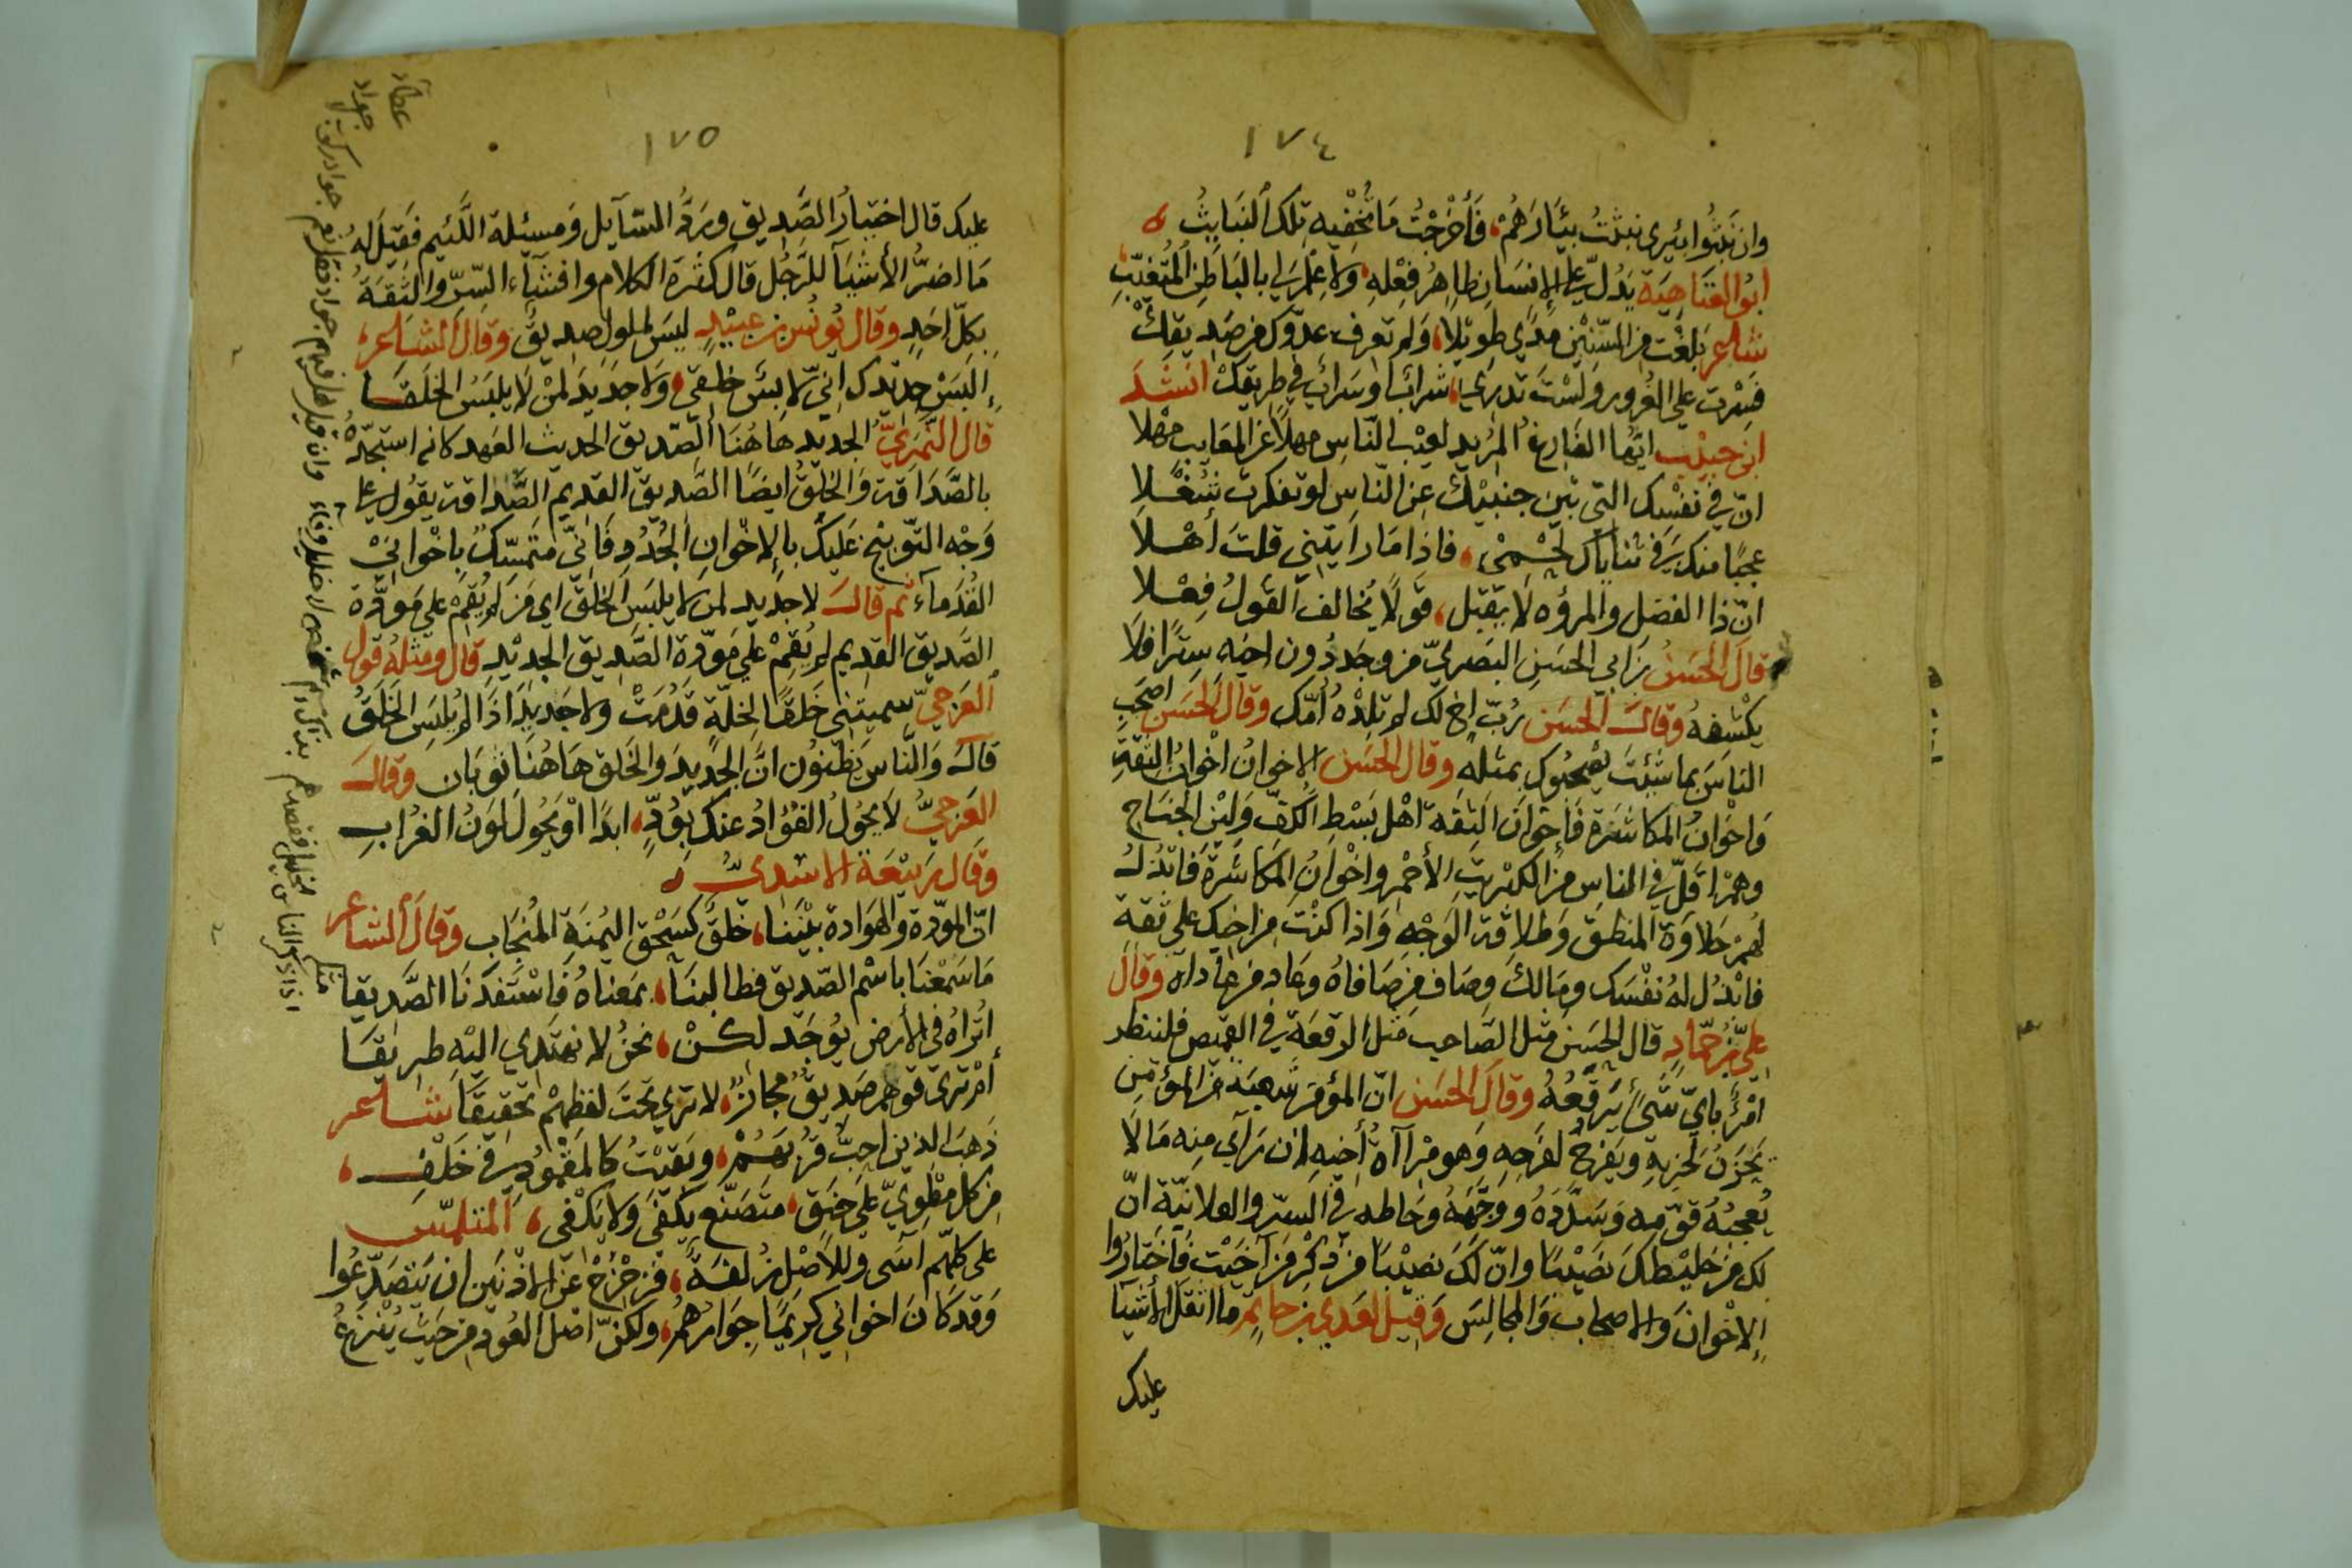 ١٧٤
وان نبثوا بئري نبثت بئارهم، فأخرجت ما تخفيه تلك النبايث
ابو العتاهية يدل على الإنسان ظاهر فعله، ولا علم لي بالباطن المتغيّب
شاعر بلغت من السنين مدى طويلا، ولم تعرف عدوّك من صديقك
فسرت على الغرور ولست تدري، شراب او سراب في طريقك انشد
ابن حبيب ايها الفارغ المريد لعيب الناس مهلا عن المعايب مهلا
انّ في نفسك التي بين جنبيك عن الناس لو تفكرت شغلا
عجبا منك في ثناياك لحمي، فاذا ما رايتني قلت أهلا
انّ ذا الفضل والمروه لا يقبل، قولا يخالف القول فعلا
قال الحسن بن ابي الحسن البصريّ من وجد دون اخيه سترا فلا
يكشفه وقال الحسن ربّ اخ لك لم تلده امّك وقال الحسن اصحب
الناس بما شئت يصحبوك بمثله وقال الحسن الاخوان اخوان الثقة
واخوان المكاشرة فإخوان الثقة اهل بسط الكفّ ولين الجناح
وهم اقلّ في الناس من الكبريت الأحمر واخوان المكاشرة فابذل
لهم حلاوة المنطق وطلاقة الوجه واذا كنت من اخيك على ثقة
فابذل له نفسك ومالك وصاف من صافاه وعاد من عاداه وقال
عليّ بن حمّاد قال الحسن مثل الصاحب مثل الرقعة في القميص فلينظر
امرؤ بايّ شيء يرقعه وقال الحسن انّ المؤمن شعبة من المؤمن
يحزن لحزنه ويفرح لفرحه وهو مرآاة أخيه إن رآى منه ما لا
يعجبه قوّمه وسدّده ووجّهه وحاطه في السرّ والعلانيّة انّ
لك من خليطك نصيبا وانّ لك نصيبا من ذكر من آخيت فاختاروا
الإخوان والاصحاب والمجالس وقيل لعدي بن حاتم ما اثقل الأشيآ
عليك
١٧٥
عليك قال اختبار الصديق وردّ السآيل ومسئلة اللئيم فقيل له
ما اضرّ الأشيآ للرّجل قال كثرة الكلام وافشآء السرّ والثقة
بكلّ احد وقال يونس بن عبيد ليس لملول صديق وقال الشاعر،
إلبس جديدك انّي لابس خلقي، ولا جديد لمن لا يلبس الخلقا
قال النّمريّ الجديد هاهنا الصّديق الحديث العهد كانه استجدّه
بالصّداقة والخلق ايضا الصّديق القديم الصّداقة يقول على
وجه التّوبيخ عليك بالإخوان الجدد فانّي متمسّك باخواني
القدمآء ثم قال لا جديد لمن لا يلبس الخلق اي من لم يقم على مودّة
الصّديق القديم لم يقم على مودّة الصّديق الجديد قال ومثله قول
العرجيّ سميتني خلقا لخلّة قدمت ولا جديد اذا لم يلبس الخلق
قال والناس يظنون انّ الجديد والخلق هاهنا ثوبان وقال
العرجيّ لا يحول الفؤاد عنك بودّ، ابدا او يحول لون الغراب
وقال ربيعة الاسديّ
انّ المودّة والهوادة بيننا، خلق كسحق اليمنة المنجاب وقال الشاعر
ما سمعنا باسم الصديق فطالبنا، بمعناه فاستفدنا الصّديقا
أتراه في الأرض يوجد لكن، نحن لا نهتدي اليه طريقا
أم ترى قولهم صديق مجاز، لا ترى تحت لفظهم تحقيقا شاعر
ذهب الذين احبّ قربهم، وبقيت كالمغمود في خلف،
من كل مطويّ على حنق، متصنّع يكفى ولا يكفي، المتلمّس
على كلهم آسى وللأصل زلفة، فزحزح عن الادنين ان يتصدّعوا
وقد كان اخواني كريما جوارهم، ولكنّ اصل العود من حيث ينزع
عطآء
جواد